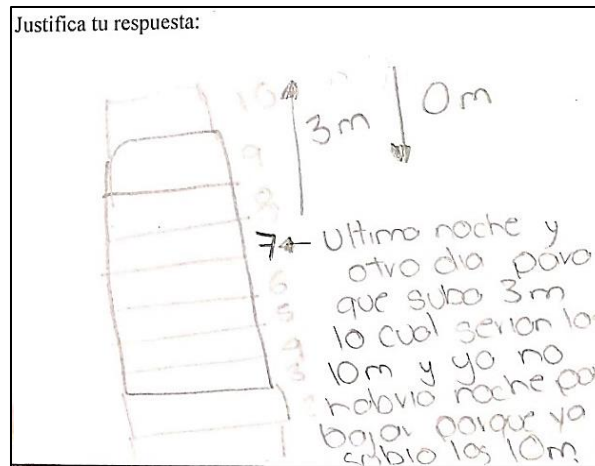 Justifica tu respuesta:
10
3m
0m
9
8
7 ← Ultima noche y
otro dia para
6
que suba 3m
5
lo cual serian lo
4
10m y ya no
3
habria noche pa
bajar porque ya
subio los 10m